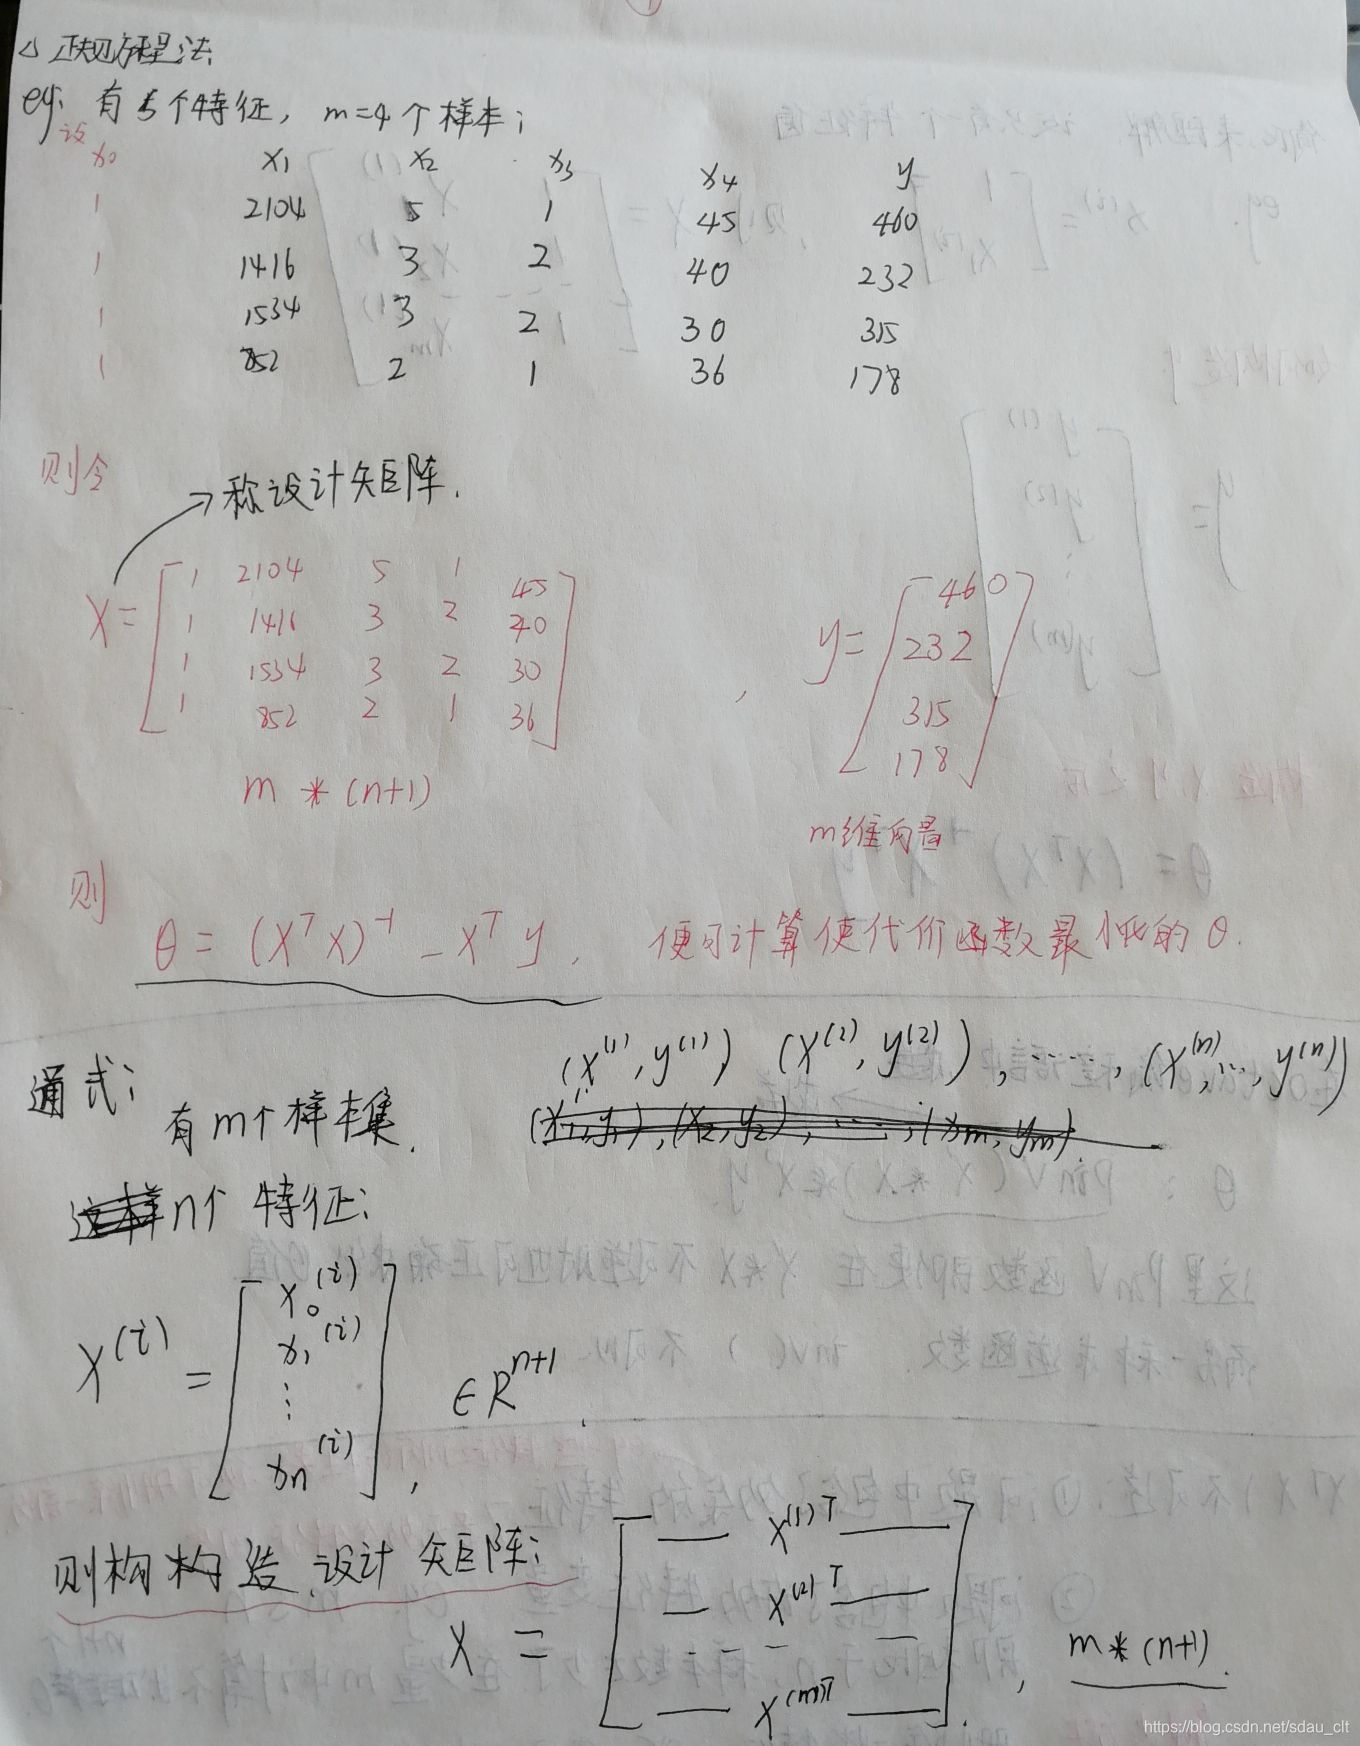 △ 正规方程法
eg: 有5个特征, m=4个样本;
设
x₀ x₁ x₂ x₃ x₄ y
1 2104 5 1 45 460
1 1416 3 2 40 232
1 1534 3 2 30 315
1 852 2 1 36 178
则令
→称设计矩阵.
X = [ 1 2104 5 1 45
1 1416 3 2 40
1 1534 3 2 30
1 852 2 1 36 ]
m * (n+1)
, y = [ 460
232
315
178 ]
m维向量
则
θ = (XᵀX)⁻¹ - Xᵀy. 便可计算使代价函数最小化的θ.
通式:
有m个样本集. (x⁽¹⁾, y⁽¹⁾) (x⁽²⁾, y⁽²⁾), ……, (x⁽ⁿ⁾, …, y⁽ⁿ⁾)
(x₁, y₁), (x₂, y₂), ……, (xₘ, yₘ).
这样n个特征:
x⁽ⁱ⁾ = [ x₀⁽ⁱ⁾
x₁⁽ⁱ⁾
⋮
xₙ⁽ⁱ⁾ ], ∈ Rⁿ⁺¹.
则构构造设计矩阵:
X = [ — x⁽¹⁾ᵀ —
— x⁽²⁾ᵀ —
- - - -
— x⁽ᵐ⁾ᵀ — ], m * (n+1).
https://blog.csdn.net/sdau_clt